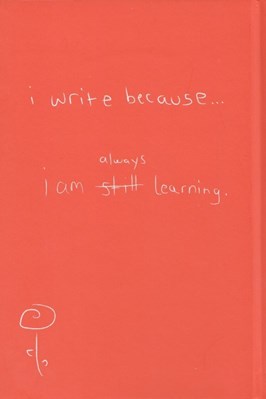 i write because...
always
i am still learning.